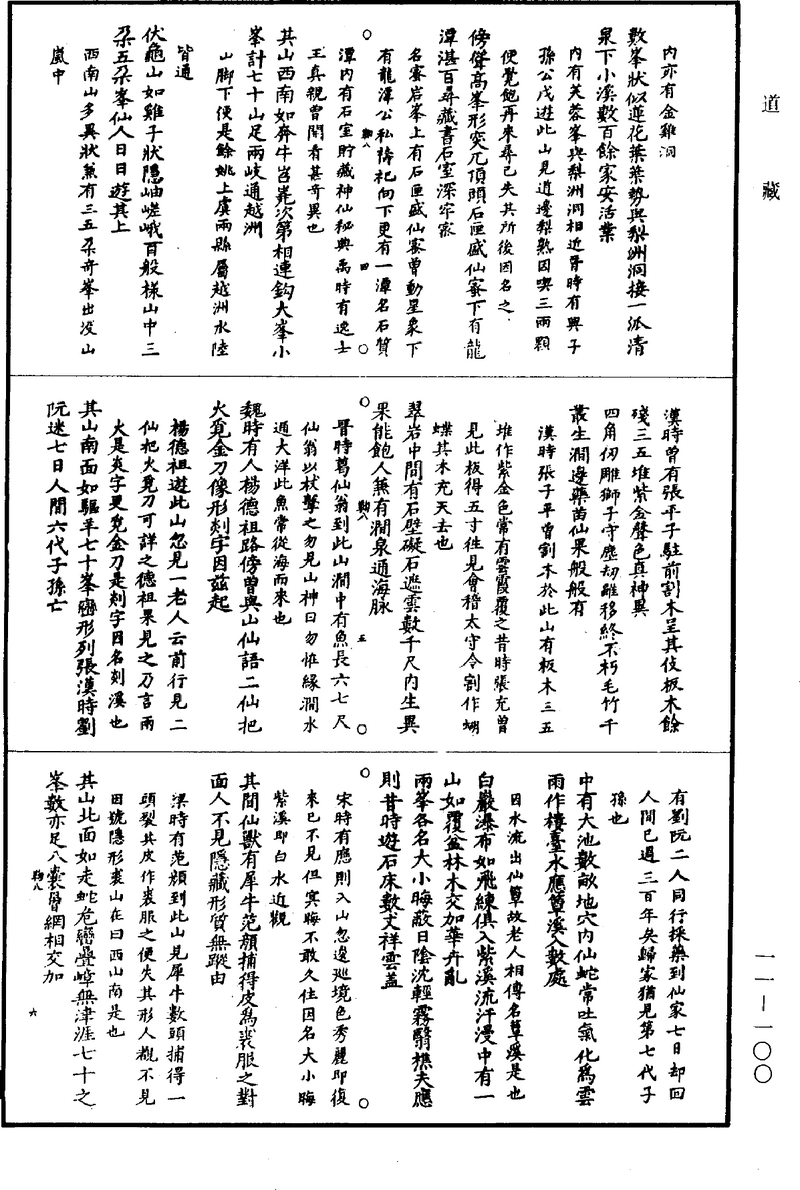 道藏
一一—一〇〇
內亦有金雞洞
數峯狀似蓮花葉葉勢與梨洲洞接一派清
泉下小溪數百餘家安活業
內有芙蓉峯與梨洲洞相近晉時有興子
孫公戊遊此山見道邊梨熟因喫三兩顆
便覺飽再來尋已失其所後因名之
傍聳高峯形突兀頂頭石匣盛仙蜜下有龍
潭湛百尋藏書石室深牢密
名蜜岩峯上有石匣盛仙蜜曾動星象下
有龍潭公私禱祀向下更有一潭名石質
潭內有石室貯藏神仙秘典禹時有逸士
王真親曾開看甚奇異也
其山西南如奔牛岧嶤次第相連鈎大峯小
峯計七十山足兩岐通越洲
山脚下便是餘姚上虞兩縣屬越洲水陸
皆通
伏龜山如雞子狀隱岫嵯峨百般樣山中三
朵五朵峯仙人日日遊其上
西南山多異狀兼有三五朵奇峯出沒山
嵐中
漢時曾有張平子駐前割木呈其伎板木餘
殘三五堆紫金聲色真神異
四角仞雕獅子守塵劫雖移終不朽毛竹千
叢生澗邊藥苗仙果般般有
漢時張子平曾割木於此山有板木三五
堆作紫金色常有雲霞覆之昔時張充曾
見此板得五寸徃見會稽太守令割作蝴
蝶其木充天去也
翠岩中間有石壁礙石遮雲數千尺內生異
果能飽人兼有澗泉通海脉
晉時葛仙翁到此山澗中有魚長六七尺
仙翁以杖擊之勿見山神曰勿恠緣澗水
通大洋此魚常從海而來也
魏時有人楊德祖路傍曾與山仙語二仙把
火覓金刀像形剡字因茲起
楊德祖遊此山忽見一老人云前行見二
仙把火覓刀可詳之德祖果見之乃言兩
火是炎字更覓金刀是剡字因名剡溪也
其山南面如驅羊七十峯巒形列張漢時劉
阮迷七日人間六代子孫亡
有劉阮二人同行採藥到仙家七日却回
人間已過三百年矣歸家猶見第七代子
孫也
中有大池數畝地穴內仙蛇常吐氣化為雲
雨作樓臺水應簟溪入數處
因水流出仙簟故老人相傳名簟溪是也
白巖瀑布如飛練俱入紫溪流汗漫中有一
山如覆盆林木交加華卉亂
兩峯各名大小晦蔽日陰沈輕霧翳樵夫應
則昔時遊石床數丈祥雲蓋
宋時有應則入山忽邊巡境色秀麗即復
來已不見但冥晦不敢久住因名大小晦
紫溪即白水近觀
其間仙獸有犀牛范顏捕得皮為裘服之對
面人不見隱藏形質無蹤由
梁時有范顏到此山見犀牛數頭捕得一
頭裂其皮作裘服之便失其形人覩不見
因號隱形裘山在曰西山南是也
其山北面如走蛇危巒疊嶂無津涯七十之
峯數亦足八囊層網相交加
四
五
六